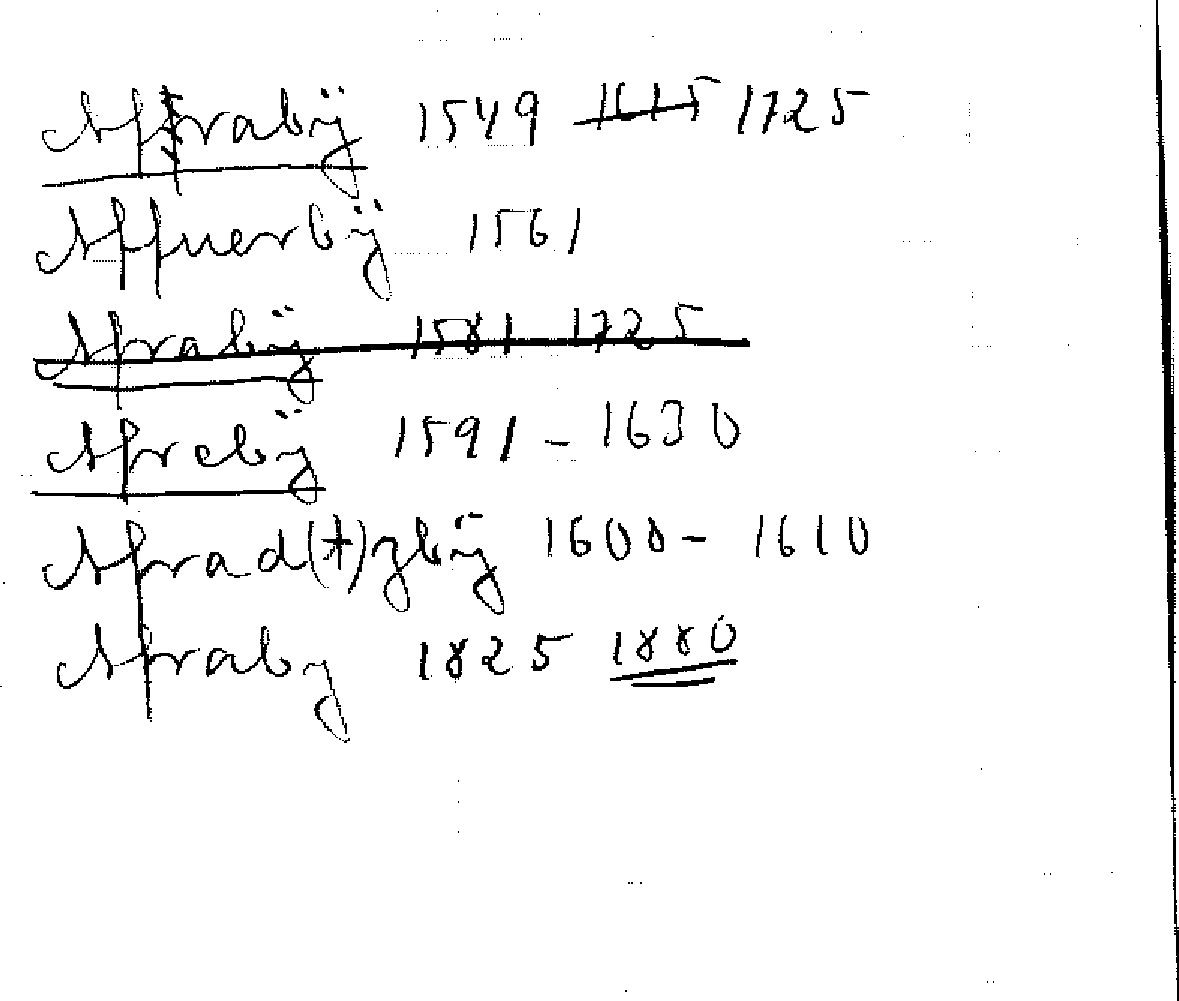 Afrabÿ 1549 1615 1725
Affuerbÿ 1561
Afrabÿ 1581 1725
Afrebÿ 1591 - 1630
Afrad(t)zbÿ 1600 - 1610
Afraby 1825 1880